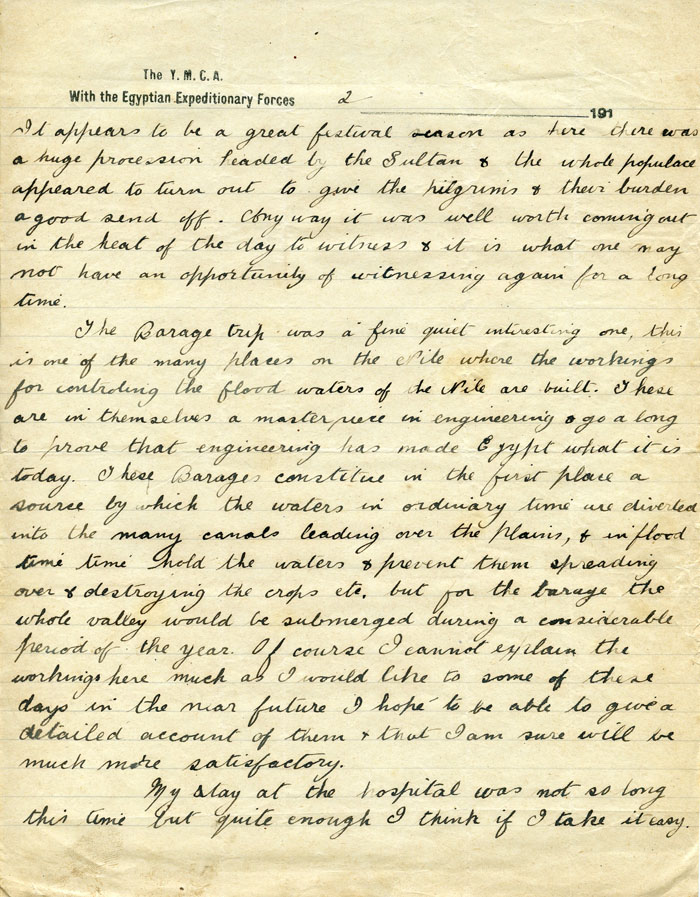 The Y. M. C. A.
With the Egyptian Expeditionary Forces 2 191
It appears to be a great festival season as there was
a huge procession headed by the Sultan & the whole populace
appeared to turn out to give the pilgrims & their burden
a good send off. Anyway it was well worth coming out
in the heat of the day to witness & it is what one may
not have an opportunity of witnessing again for a long
time.
The Barage trip was a fine quiet interesting one, this
is one of the many places on the Nile where the workings
for controling the flood waters of the Nile are built. These
are in themselves a masterpiece in engineering & go a long
to prove that engineering has made Egypt what it is
today. These Barages constitue in the first place a
source by which the waters in ordinary time are diverted
into the many canals leading over the plains, & in flood
time time hold the waters & prevent them spreading
over & destroying the crops etc, but for the barage the
whole valley would be submerged during a considerable
period of the year. Of course I cannot explain the
workings here much as I would like to some of these
days in the near future I hope to be able to give a
detailed account of them & that I am sure will be
much more satisfactory.
My stay at the hospital was not so long
this time but quite enough I think if I take it easy.